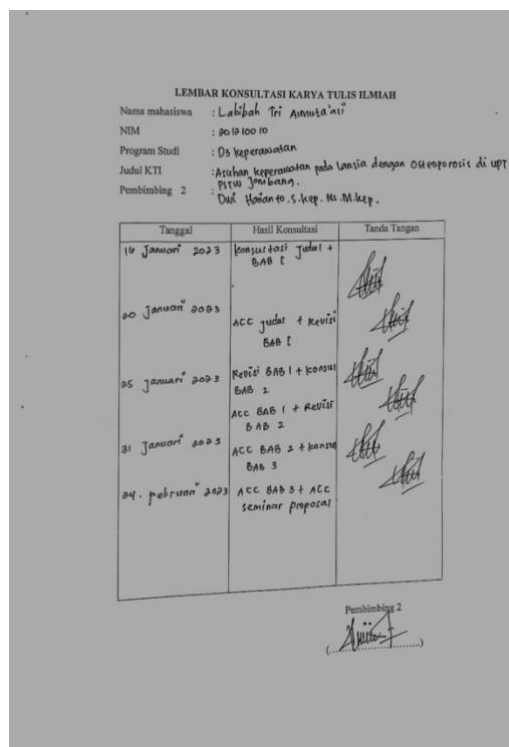 LEMBAR KONSULTASI KARYA TULIS ILMIAH
Nama mahasiswa : Labibah Tri
NIM : 201210010
Program Studi : D3 keperawatan
Judul KTI : Asuhan keperawatan pada Lansia dengan Osteoporosis di upt
PSTW Jombang.
Pembimbing 2 : Dwi Harianto. S.kep. Ns. M.kep.
Tanggal Hasil Konsultasi Tanda Tangan
Januari 2023 konsultasi Judul +
BAB I
20 Januari 2023 ACC judul + Revisi
BAB I
25 januari 2023 Revisi BAB I + konsul
BAB 2
ACC BAB I + Revisi
BAB 2
31 Januari 2023 ACC BAB 2 + konsul
BAB 3
24. februari 2023 ACC BAB 3 + ACC
seminar proposal
Pembimbing 2
(....................)